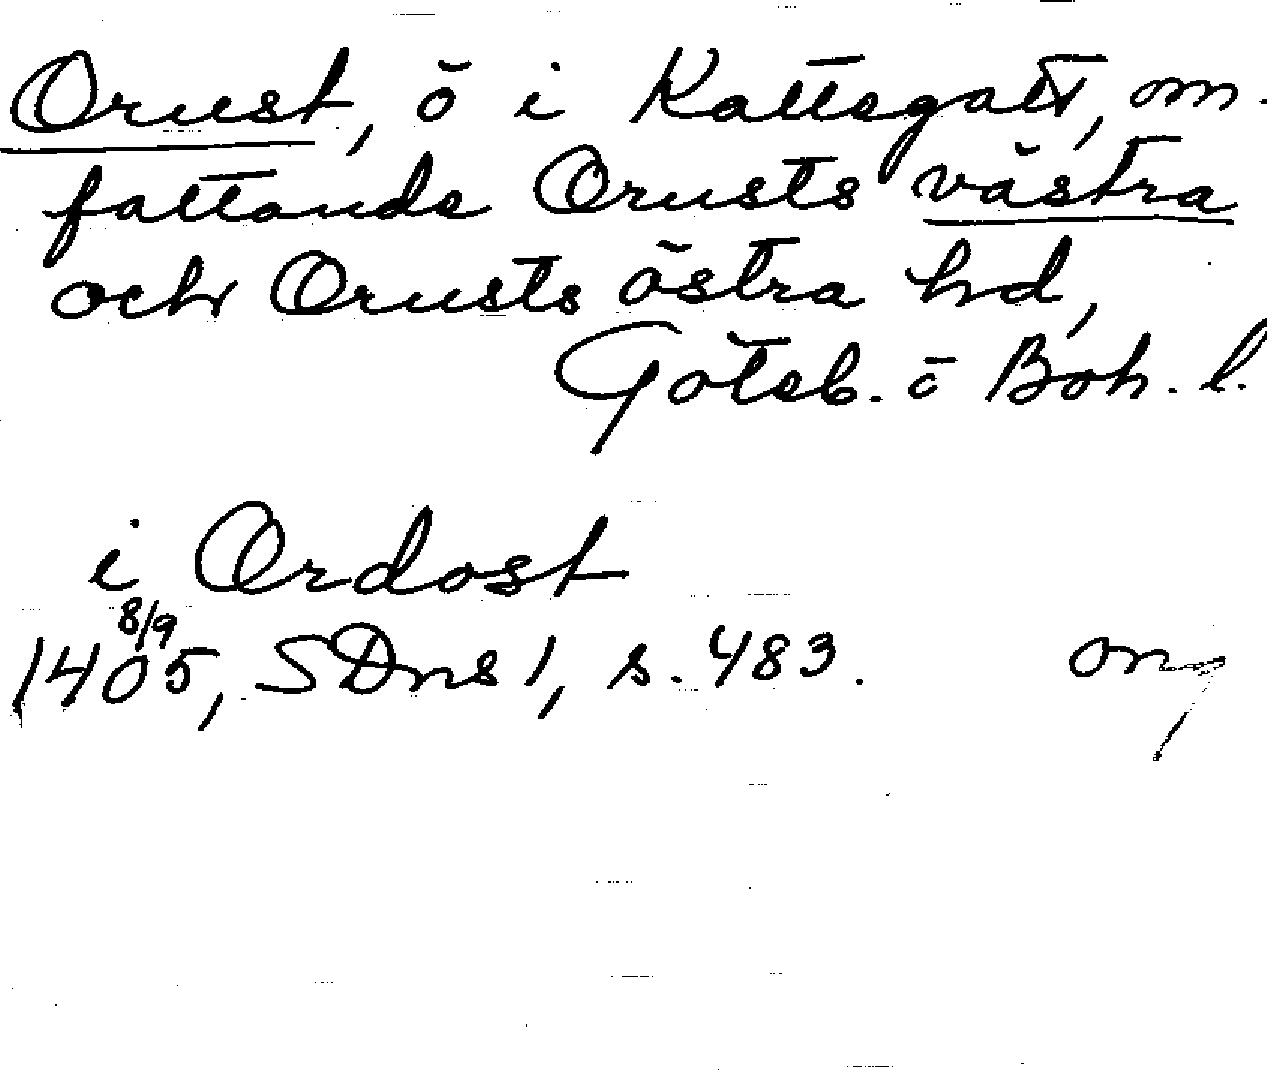 Orust, ö i Kattegatt, om-
fattande Orusts västra
och Orusts östra hd,
Göteb. o Boh. l.
i Ordost
1405 8/9, SDns 1, s. 483.